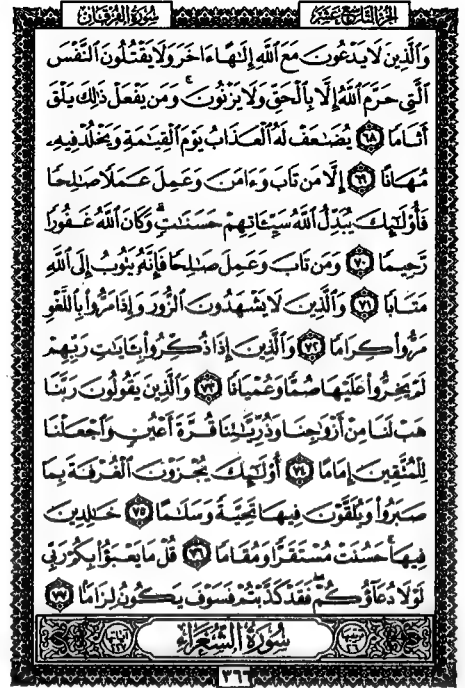 الجزء التاسع عشر
سورة الفرقان
وَٱلَّذِينَ لَا يَدْعُونَ مَعَ ٱللَّهِ إِلَٰهًا ءَاخَرَ وَلَا يَقْتُلُونَ ٱلنَّفْسَ
ٱلَّتِى حَرَّمَ ٱللَّهُ إِلَّا بِٱلْحَقِّ وَلَا يَزْنُونَ ۚ وَمَن يَفْعَلْ ذَٰلِكَ يَلْقَ
أَثَامًا ٦٨ يُضَٰعَفْ لَهُ ٱلْعَذَابُ يَوْمَ ٱلْقِيَٰمَةِ وَيَخْلُدْ فِيهِۦ
مُهَانًا ٦٩ إِلَّا مَن تَابَ وَءَامَنَ وَعَمِلَ عَمَلًا صَٰلِحًا
فَأُو۟لَٰٓئِكَ يُبَدِّلُ ٱللَّهُ سَيِّـَٔاتِهِمْ حَسَنَٰتٍ ۗ وَكَانَ ٱللَّهُ غَفُورًا
رَّحِيمًا ٧٠ وَمَن تَابَ وَعَمِلَ صَٰلِحًا فَإِنَّهُۥ يَتُوبُ إِلَى ٱللَّهِ
مَتَابًا ٧١ وَٱلَّذِينَ لَا يَشْهَدُونَ ٱلزُّورَ وَإِذَا مَرُّوا۟ بِٱللَّغْوِ
مَرُّوا۟ كِرَامًا ٧٢ وَٱلَّذِينَ إِذَا ذُكِّرُوا۟ بِـَٔايَٰتِ رَبِّهِمْ
لَمْ يَخِرُّوا۟ عَلَيْهَا صُمًّا وَعُمْيَانًا ٧٣ وَٱلَّذِينَ يَقُولُونَ رَبَّنَا
هَبْ لَنَا مِنْ أَزْوَٰجِنَا وَذُرِّيَّٰتِنَا قُرَّةَ أَعْيُنٍ وَٱجْعَلْنَا
لِلْمُتَّقِينَ إِمَامًا ٧٤ أُو۟لَٰٓئِكَ يُجْزَوْنَ ٱلْغُرْفَةَ بِمَا
صَبَرُوا۟ وَيُلَقَّوْنَ فِيهَا تَحِيَّةً وَسَلَٰمًا ٧٥ خَٰلِدِينَ
فِيهَا ۚ حَسُنَتْ مُسْتَقَرًّا وَمُقَامًا ٧٦ قُلْ مَا يَعْبَؤُا۟ بِكُمْ رَبِّى
لَوْلَا دُعَآؤُكُمْ ۖ فَقَدْ كَذَّبْتُمْ فَسَوْفَ يَكُونُ لِزَامًا ٧٧
سُورَةُ الشُّعَرَاءِ
٣٦٦